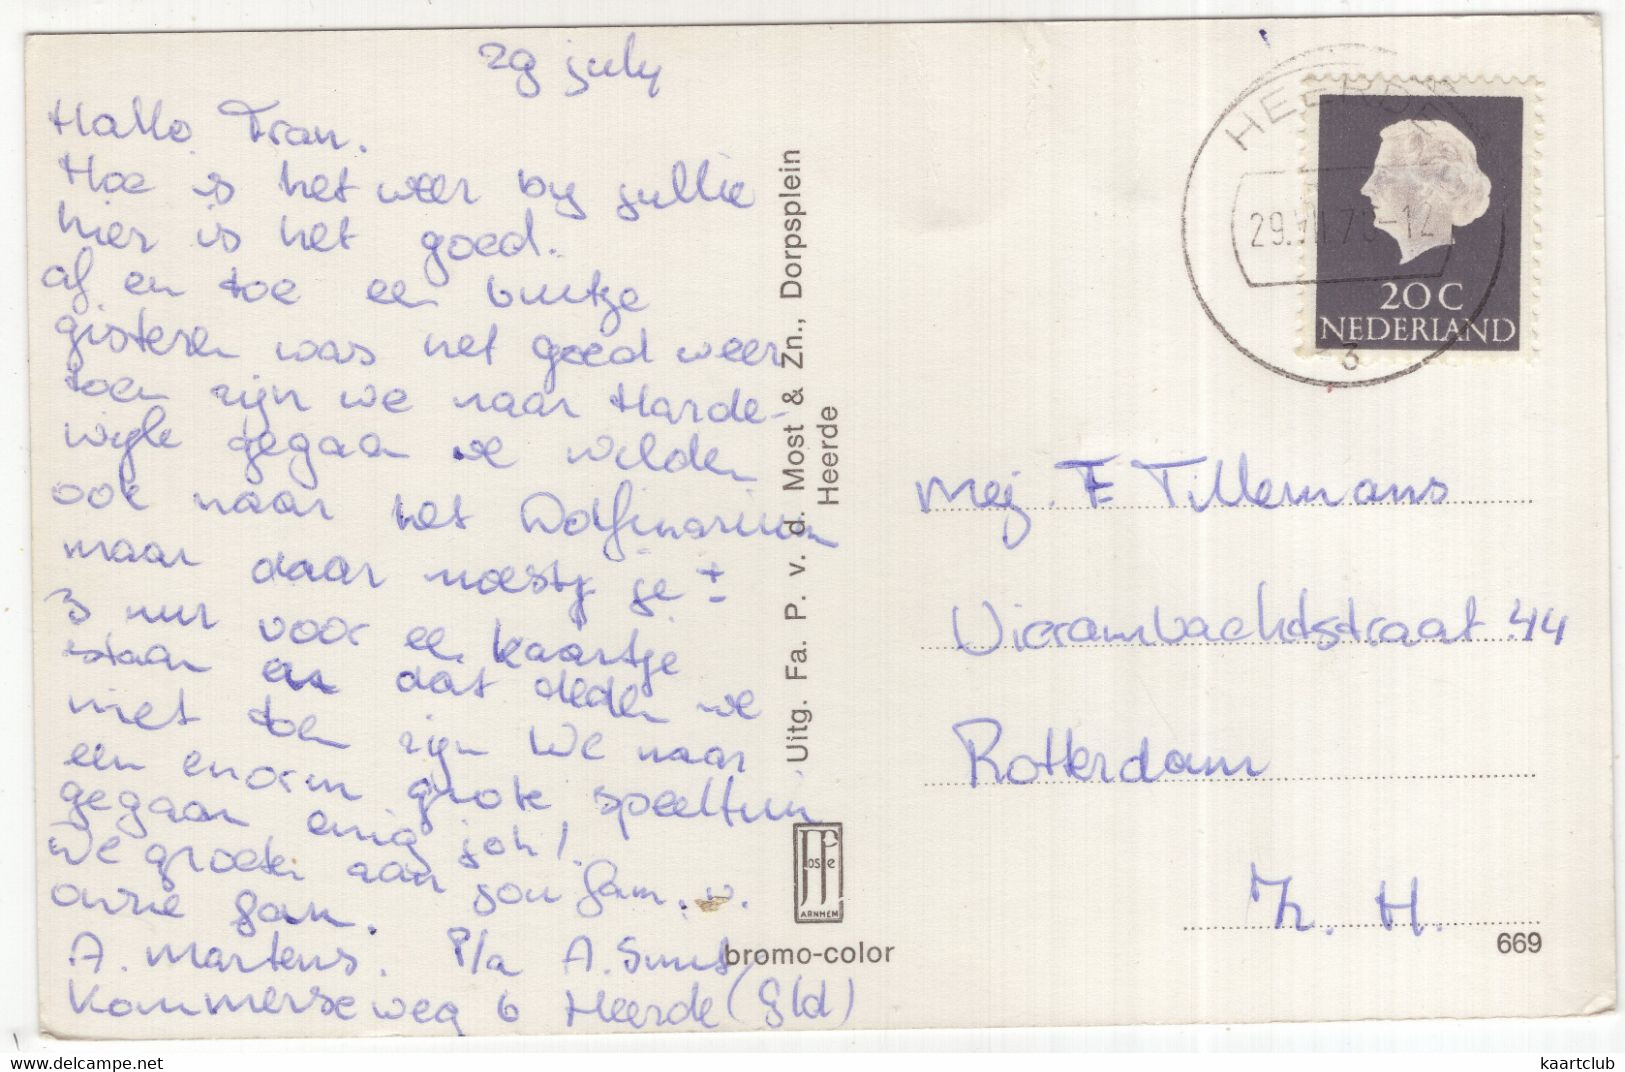 29 july
Hallo Fran.
Hoe is het weer by jullie
hier is het goed.
af en toe een buitje
gisteren was het goed weer
toen zijn we naar Harde-
wijk gegaan we wilden
ook naar het Dolfinarium
maar daar moest je ±
3 uur voor een kaartje
staan en dat deden we
niet toen zijn we naar
een enorm grote speeltuin
gegaan enig joh!
De groeten aan jou fam. v.
onze fam.
A. Martens. P/a A. Smit
Kammerseweg 6 Heerde (Gld)
Uitg. Fa. P. v. d. Most & Zn., Dorpsplein
Heerde
Poste
ARNHEM
bromo-color
HEERDE
29.VII.70-12
3
20C
NEDERLAND
mej. F Tillemans
Vierambachtsstraat 44
Rotterdam
Z. H.
669
kaartclub